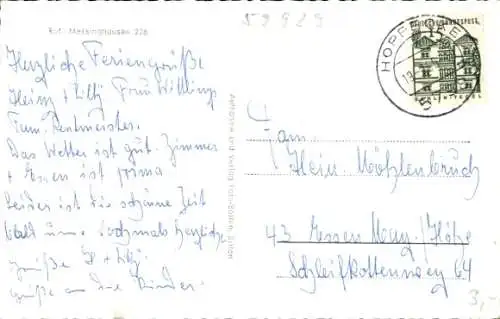 Ruf: Messinghausen 226
52929
Herzliche Feriengrüße
Heinz + Lilly Frau Willing
Fam. Rentmeister.
Das Wetter ist gut. Zimmer
+ Essen ist prima
Leider ist die schöne Zeit
bald um. Nochmals herzliche
Grüße H + Lilly.
Grüße an die Kinder.
DEUTSCHE BUNDESPOST
HOPPECKE
Fam.
Hein. Möhlenbruch
43 Essen Marg./Höhe
Schleifkottenweg 64
3,-